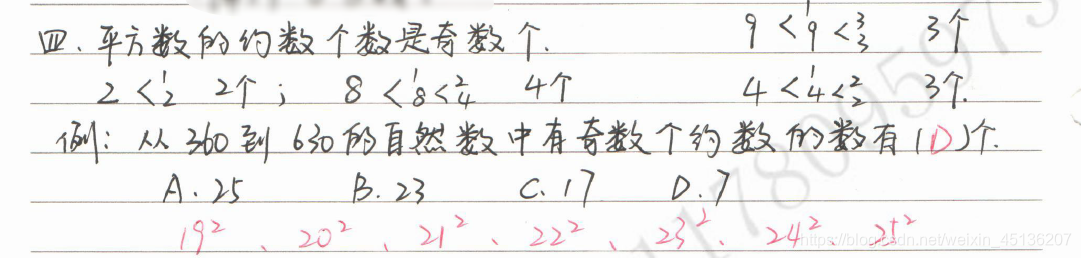 四、平方数的约数个数是奇数个. 9 < 1 9 < 3 3 3个
2 < 1 2 2个； 8 < 1 8 < 2 4 4个 4 < 1 4 < 2 2 3个.
例：从360到630的自然数中有奇数个约数的数有(D)个.
A.25 B.23 C.17 D.7
19²、20²、21²、22²、23²、24²、25²
https://blog.csdn.net/weixin_45136207